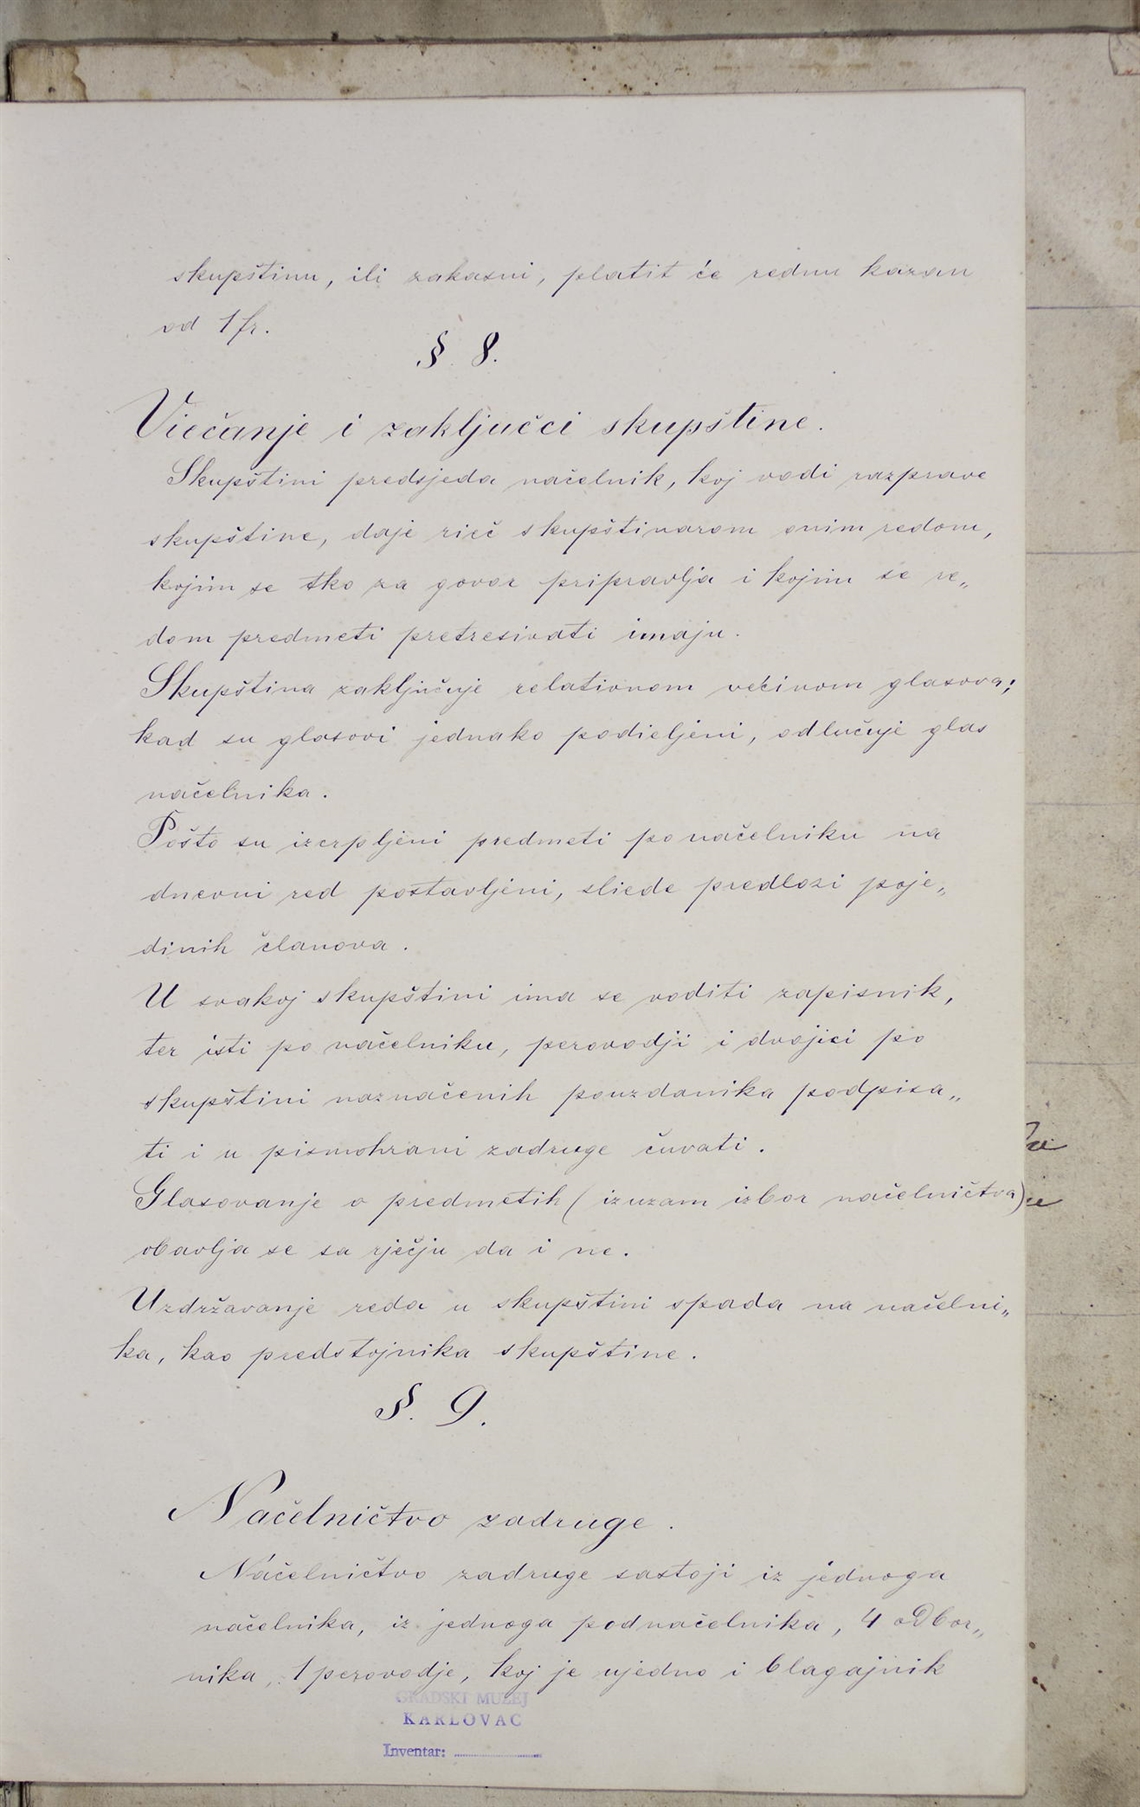 skupštinu, ili zakasni, platit će rednu karan
od 1 fr.
§ 8.
Viečanje i zaključci skupštine.
Skupštini predsjeda načelnik, koj vodi razprave
skupštine, daje rieč skupštinarom onim redom,
kojim se tko za govor pripravlja i kojim se re„
dom predmeti pretresivati imaju.
Skupština zaključuje relationom većinom glasova;
kad su glasovi jednako podieljeni, odlučuje glas
načelnika.
Pošto su izcrpljeni predmeti po načelniku na
dnevni red postavljeni, sliede predlozi poje„
dinih članova.
U svakoj skupštini ima se voditi zapisnik,
ter isti po načelniku, perovodji i dvojici po
skupštini naznačenih pouzdanika podpisa„
ti i u pismohrani zadruge čuvati.
Glasovanje o predmetih (izuzam izbor načelničtva)
obavlja se sa rječju da i ne.
Uzdržavanje reda u skupštini spada na načelni„
ka, kao predstojnika skupštine.
§. 9.
Načelničtvo zadruge.
Načelničtvo zadruge sastoji iz jednoga
načelnika, iz jednoga podnačelnika, 4 odbor„
nika, 1 perovodje, koj je ujedno i blagajnik
GRADSKI MUZEJ
KARLOVAC
Inventar: